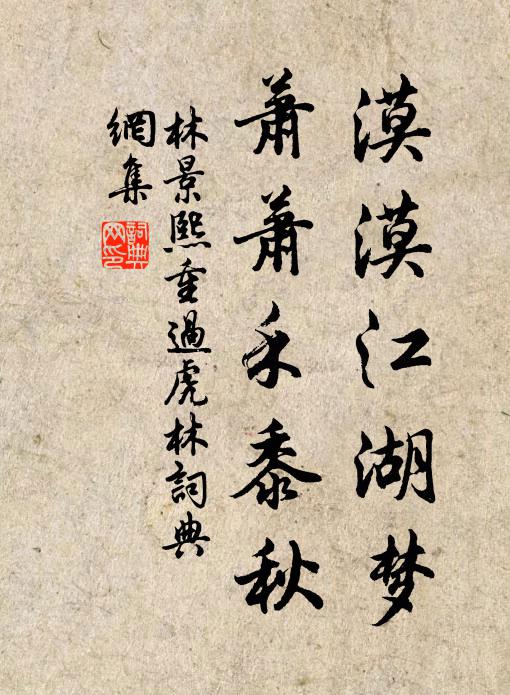 漠漠江湖梦
萧萧禾黍秋
林景熙重過虎林詞典
網集
詞典網印